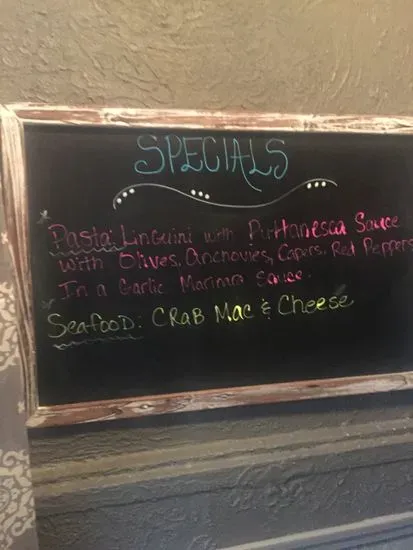 SPECIALS
Pasta: Linguini with Puttanesca Sauce
with Olives, anchovies, Capers, Red Peppers
In a Garlic Marinara Sauce.
Seafood: CRaB Mac & Cheese